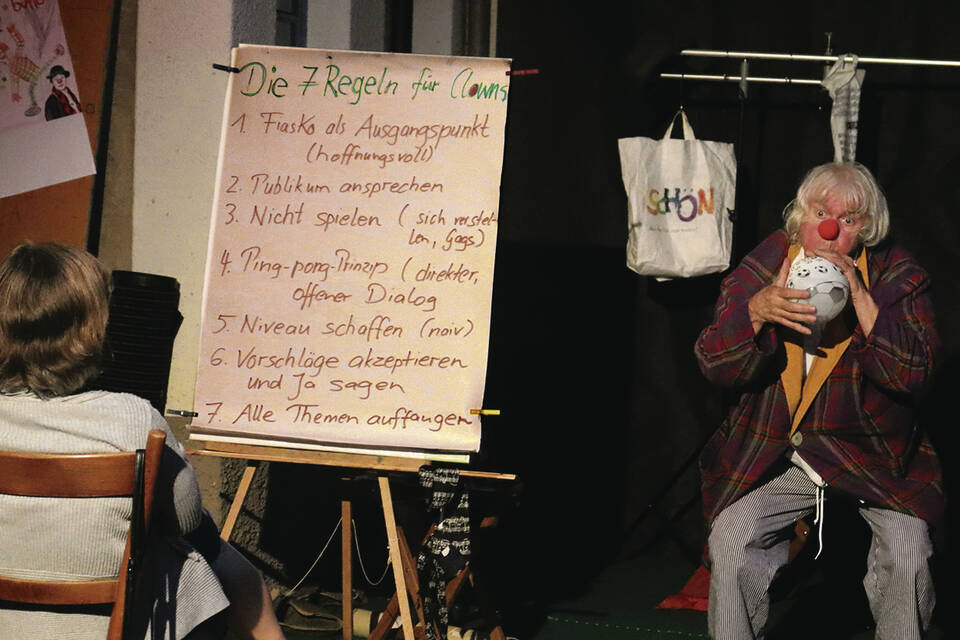 Die 7 Regeln für Clowns
1. Fiasko als Ausgangspunkt
(hoffnungsvoll)
2. Publikum ansprechen
3. Nicht spielen (sich verstel-
len, Gags)
4. Ping-pong-Prinzip (direkter,
offener Dialog
5. Niveau schaffen (naiv)
6. Vorschläge akzeptieren
und Ja sagen
7. Alle Themen auffangen
SCHÖN